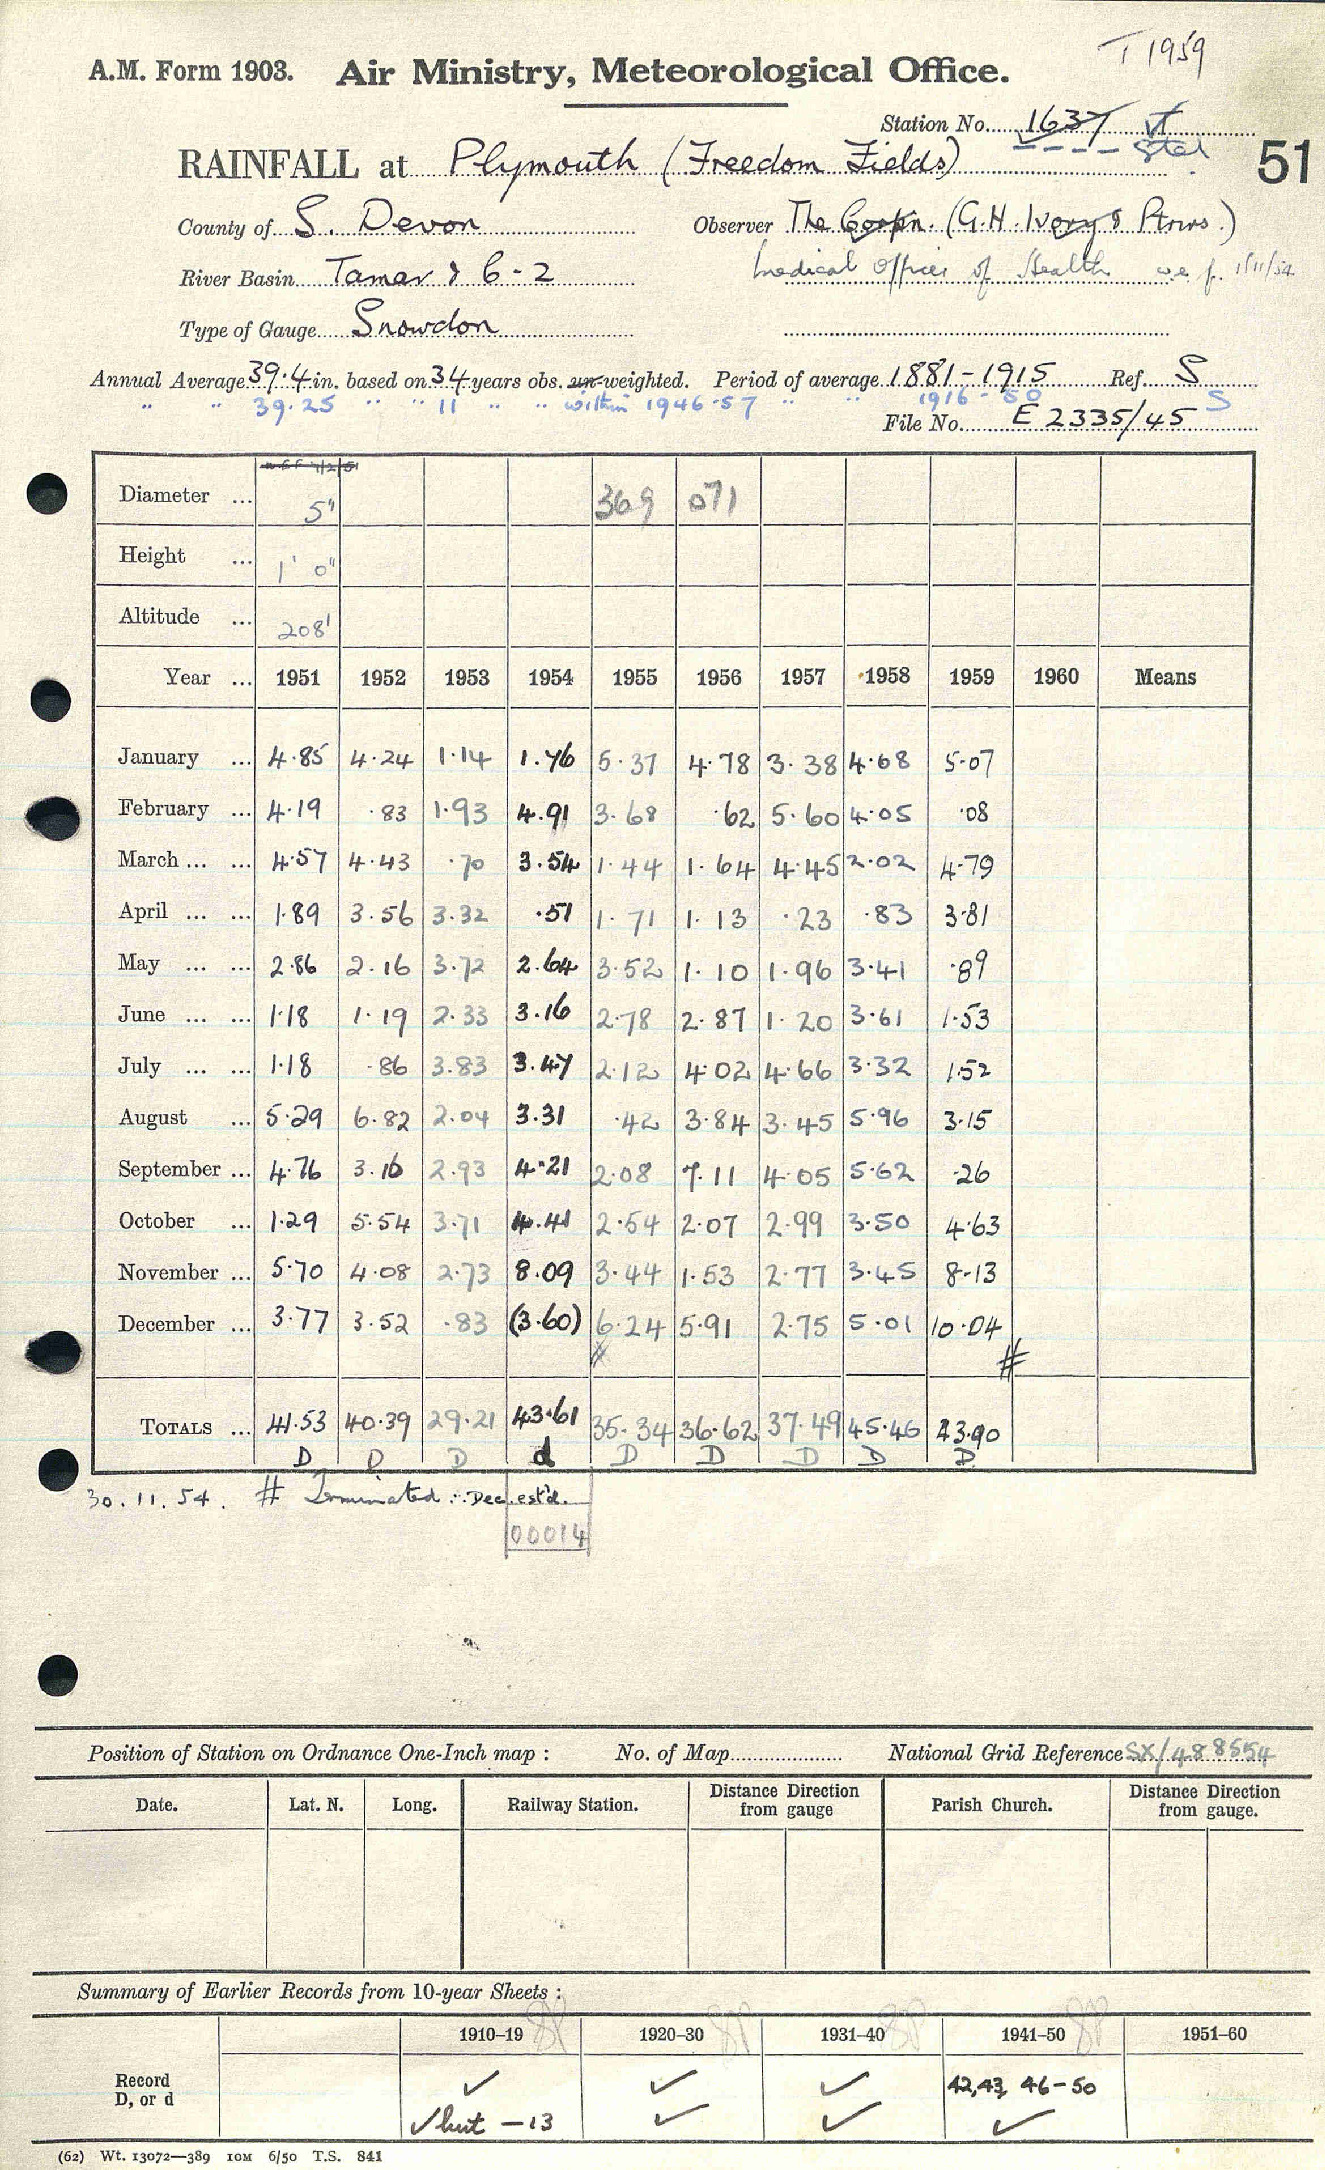 T 1959
A.M. Form 1903. Air Ministry, Meteorological Office.
Station No. 1637
51
RAINFALL at Plymouth (Freedom Fields)
County of S. Devon Observer The Corpn. (G.H. Ivory & Ptnrs.)
River Basin Tamar & 6-2 Medical Officer of Health w.e.f. 1/11/54
Type of Gauge Snowdon
Annual Average 39.4 in. based on 34 years obs. un-weighted. Period of average 1881-1915 Ref. S
" " 39.25 " " 11 " " within 1946-57 " " 1916-50 S
File No. E 2335/45
Diameter ... 5" 369 071
Height ... 1' 0"
Altitude ... 208'
Year ... 1951 1952 1953 1954 1955 1956 1957 1958 1959 1960 Means
January ... 4.85 4.24 1.14 1.76 5.37 4.78 3.38 4.68 5.07
February ... 4.19 .83 1.93 4.91 3.68 .62 5.60 4.05 .08
March ... ... 4.57 4.43 .70 3.54 1.44 1.64 4.45 2.02 4.79
April ... ... 1.89 3.56 3.32 .51 1.71 1.13 .23 .83 3.81
May ... ... 2.86 2.16 3.72 2.64 3.52 1.10 1.96 3.41 .89
June ... ... 1.18 1.19 2.33 3.16 2.78 2.87 1.20 3.61 1.53
July ... ... 1.18 .86 3.83 3.47 2.12 4.02 4.66 3.32 1.52
August ... 5.29 6.82 2.04 3.31 .42 3.84 3.45 5.96 3.15
September ... 4.76 3.16 2.93 4.21 2.08 7.11 4.05 5.62 .26
October ... 1.29 5.54 3.71 4.41 2.54 2.07 2.99 3.50 4.63
November ... 5.70 4.08 2.73 8.09 3.44 1.53 2.77 3.45 8.13
December ... 3.77 3.52 .83 (3.60) 6.24 5.91 2.75 5.01 10.04
# #
TOTALS ... 41.53 40.39 29.21 43.61 35.34 36.62 37.49 45.46 43.90
D D D d D D D D D
30.11.54. # Terminated ∴ Dec. est'd.
00014
Position of Station on Ordnance One-Inch map : No. of Map National Grid Reference SX/488554
Date. Lat. N. Long. Railway Station. Distance from gauge Direction Parish Church. Distance from gauge. Direction
Summary of Earlier Records from 10-year Sheets :
1910-19 1920-30 1931-40 1941-50 1951-60
Record ✓ ✓ ✓ 42,43, 46-50
D, or d ✓ but -13 ✓ ✓ ✓
(62) Wt. 13072—389 10M 6/50 T.S. 841